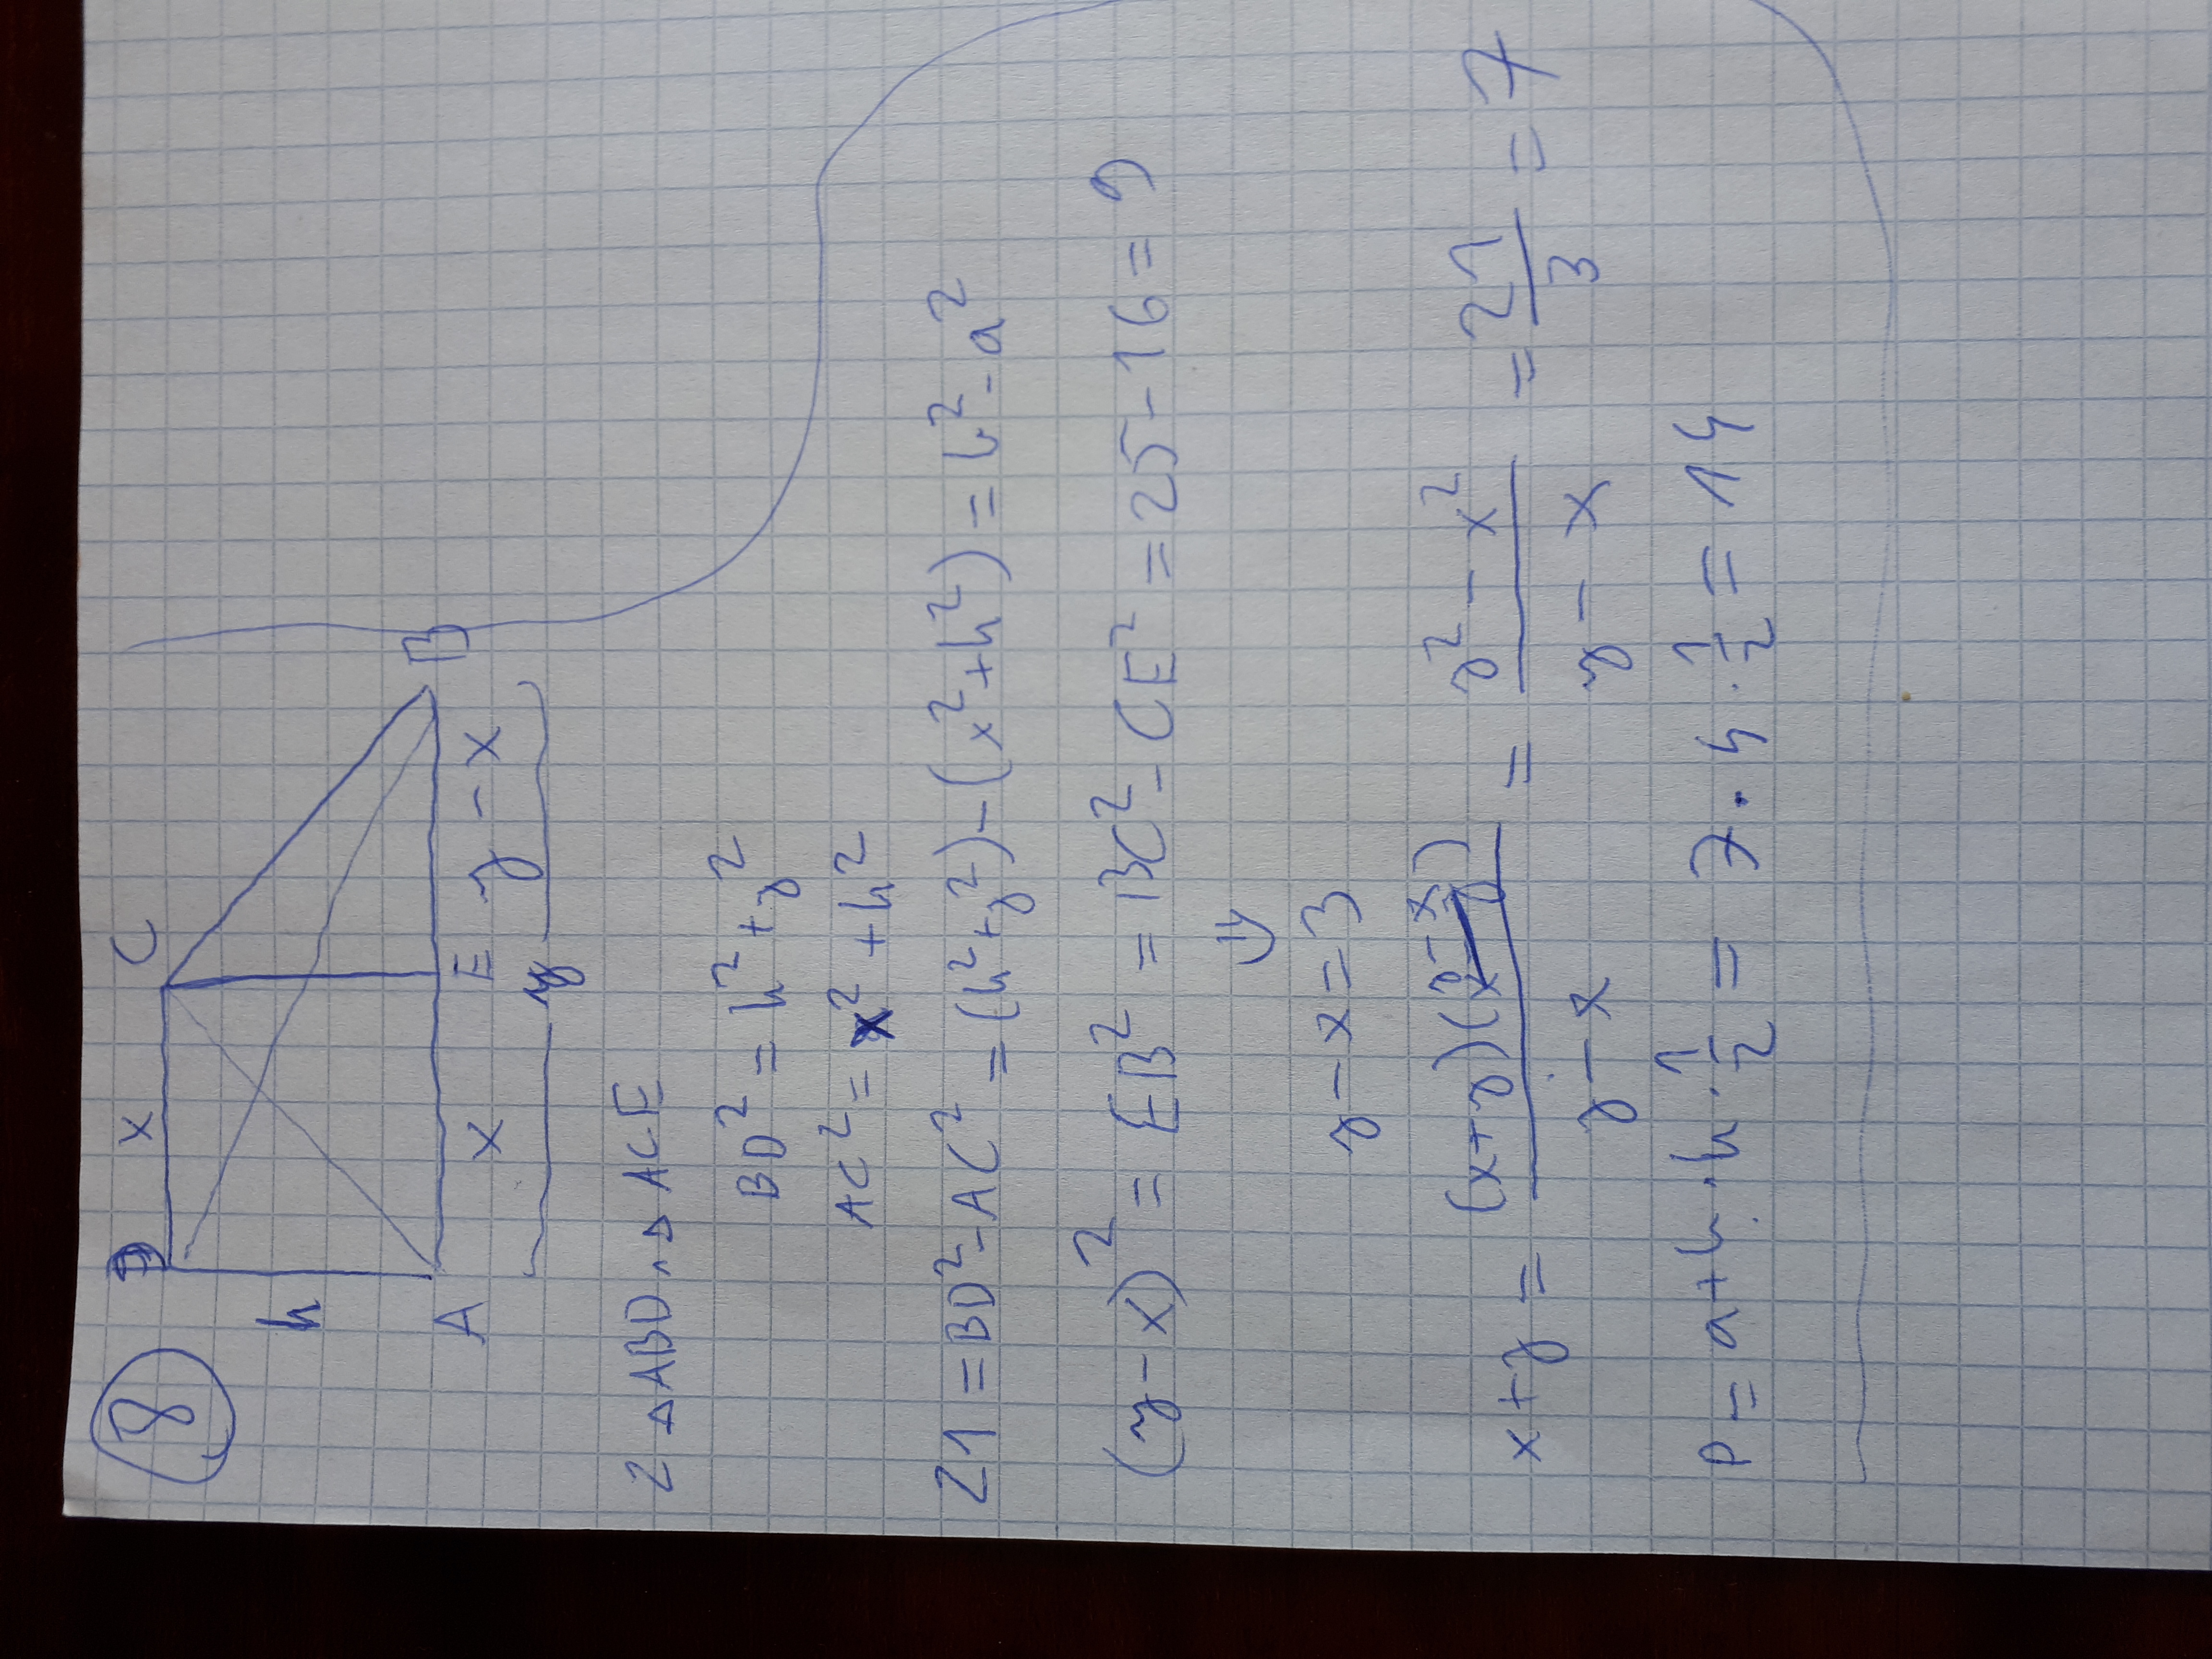 8
D x C
h
A x E y - x B
y
Z △ABD i △ ACE
BD² = h² + y²
AC² = x² + h²
21 = BD² - AC² = (h² + y²) - (x² + h²) = y² - x²
(y - x)² = EB² = BC² - CE² = 25 - 16 = 9
⇓
y - x = 3
x + y = (x+y)(y-x) / y - x = y² - x² / y - x = 21/3 = 7
P = a+b · h · 1/2 = 7 · 4 · 1/2 = 14